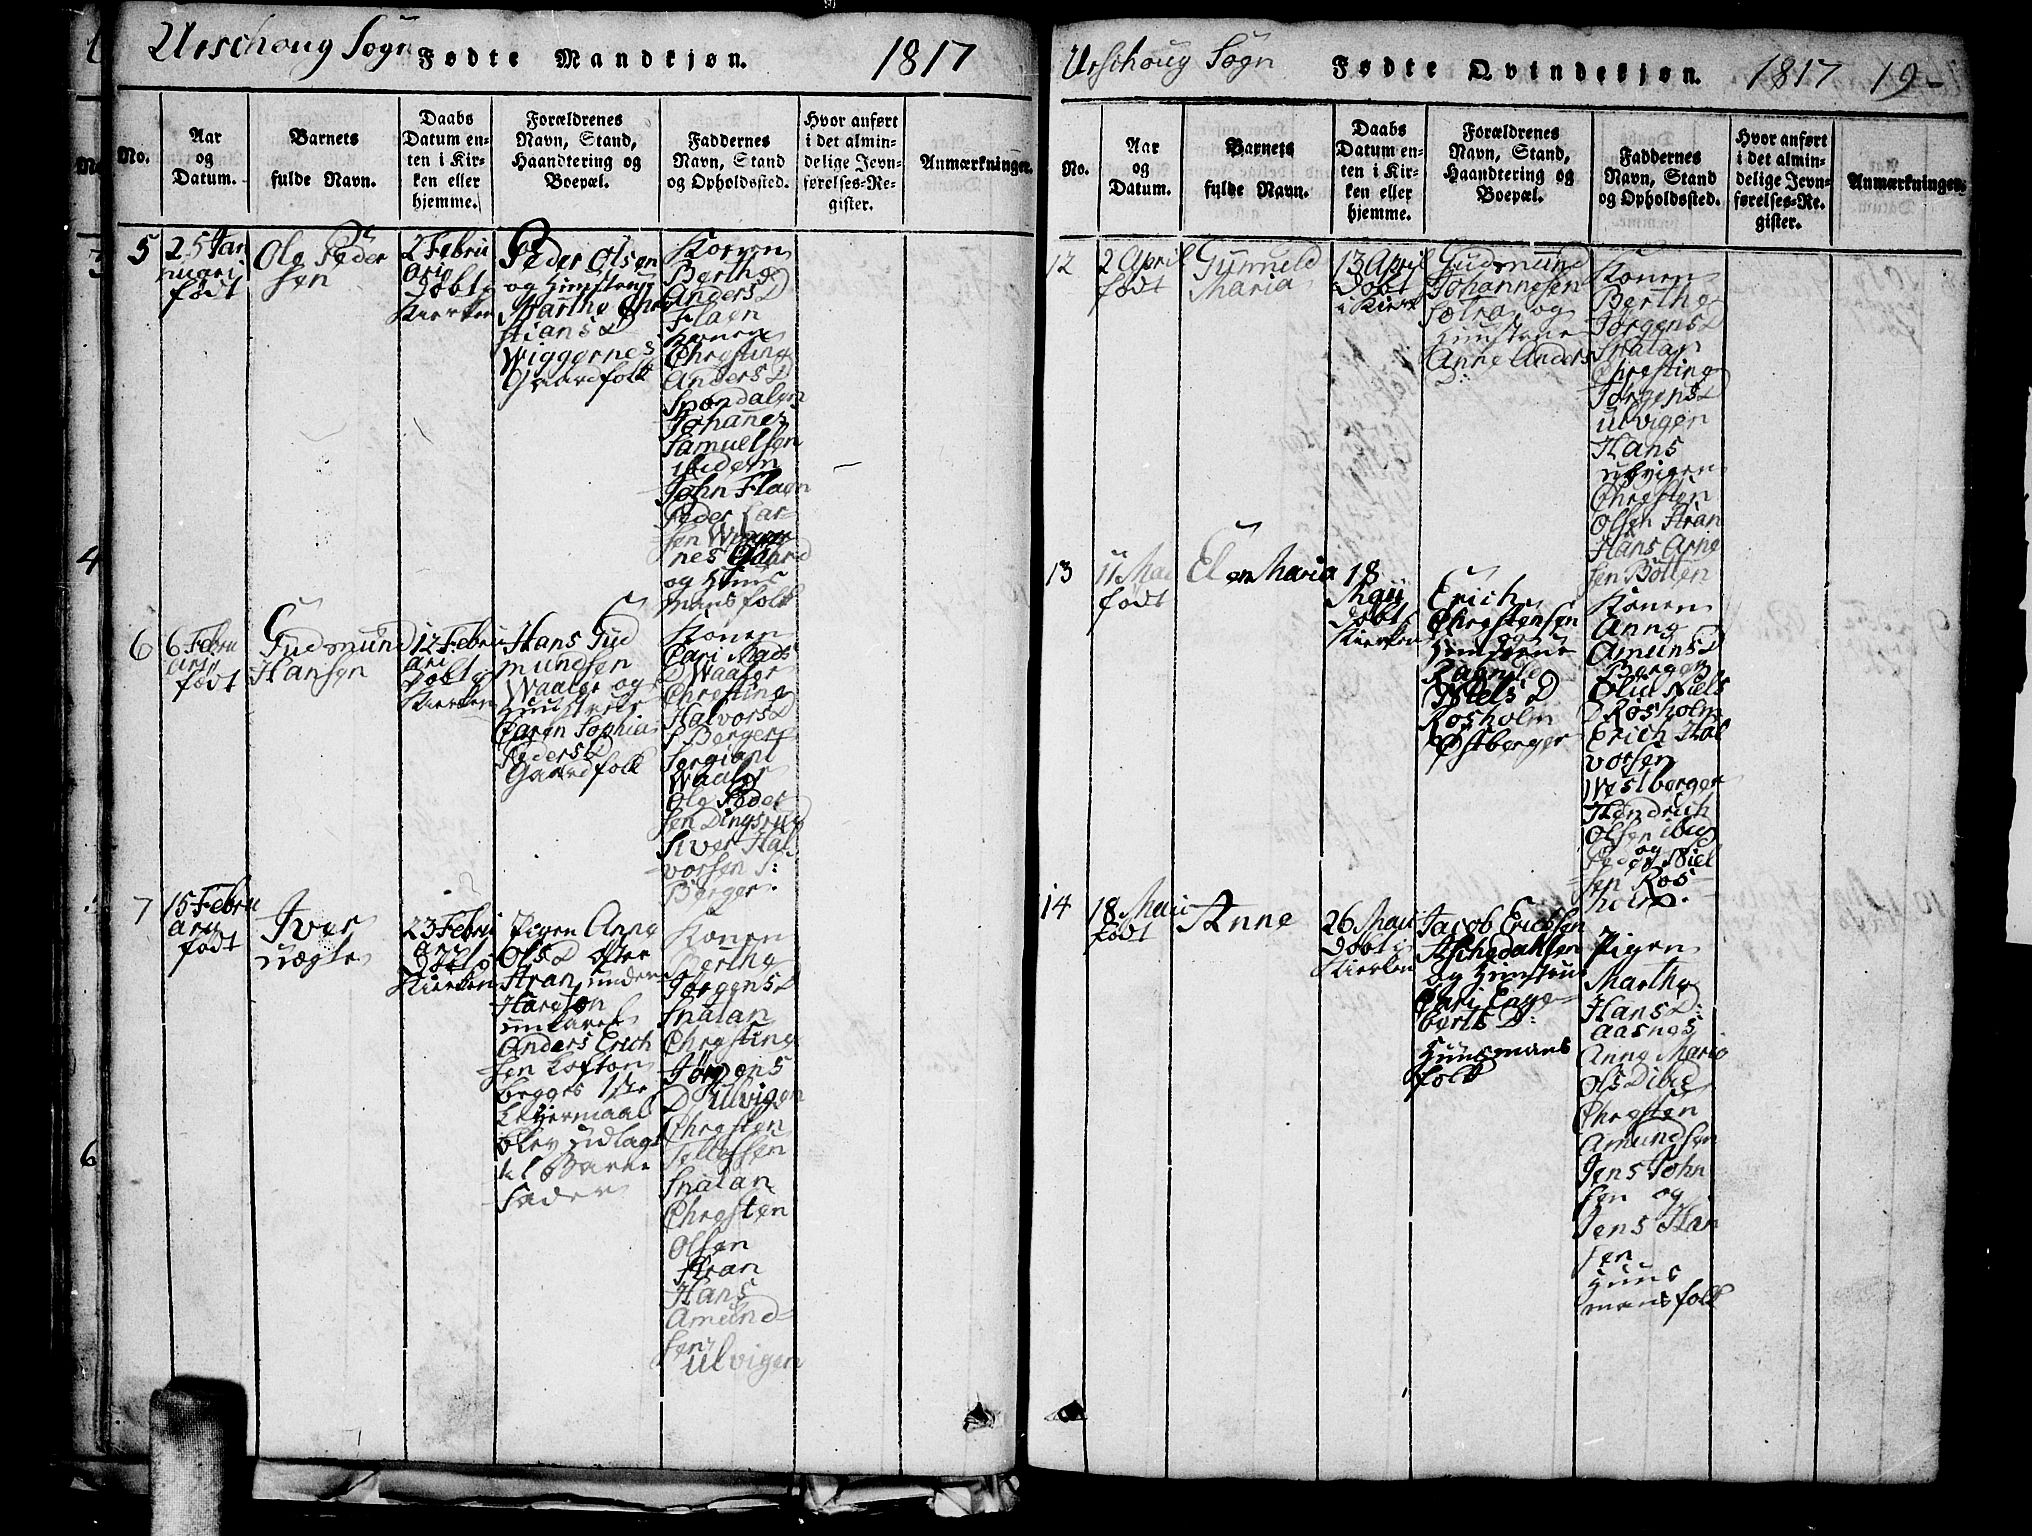 Urschoug Sogn
Fødte Mandkjøn.
1817
No.
Aar
og
Datum.
Barnets
fulde Navn.
Daabs
Datum en-
ten i Kir-
ken eller
hjemme.
Forældrenes
Navn, Stand,
Haandtering og
Boepæl.
Faddernes
Navn, Stand
og Opholdssted.
Hvor anført
i det almin-
delige Jevn-
førelses-Re-
gister.
Anmærkninger.
5
25 Jan
nuari
født
Ole Peder
sen
2 Febru
ari
Døbt i
Kierken
Peder Olsen
og Hustrue
Marthe Chri
stians D
Wiggernes
Gaardfolk
Konen
Berthe
Anders D
Flaen
Konen
Chrestine
Anders D
Spondalen
Johanes
Samuelsen
ibidem
John Flaen
Peder Lar-
sen Wigger
nes Gaard
og Huus
mansfolk
6
6 Febru
ari
født
Gudmund
Hansen
12 Febru
ari
Døbt i
Kierken
Hans Gud
mundsen
Waaler og
Hustrue
Caren Sophia
Peders D
Gaardfolk
Konen
Cari Mads
D Waaler
Chrestine
Halvors D
S Berger
Sergiant
Waaler
Ole Peder
sen Dingsrud
Siver Hal
vorsen S:
Berger.
7
15 Febru
ari
født
Iver
uægte
23 Febru
ari
Døbt i
Kierken
Pigen Anne
Ols D
Aran under
Anders Erich
sen Loften
1ste
Leyermaal
blev udlagt
til Barne
Fader
Konen
Berthe
Jørgens D
Snalan
Chrestine
Jørgens
D Ulvigen
Chresten
Tollefsen
Snalan
Chresten
Olsen
Aran
Hans
Amund-
sen
Ulvigen
Urschoug Sogn
Fødte Qvindekjøn.
1817
19-
No.
Aar
og
Datum.
Barnets
fulde Navn.
Daabs
Datum en-
ten i Kir-
ken eller
hjemme.
Forældrenes
Navn, Stand,
Haandtering og
Boepæl.
Faddernes
Navn, Stand
og Opholdssted.
Hvor anført
i det almin-
delige Jevn-
førelses-Re-
gister.
Anmærkninger.
12
2 April
født
Gunneld
Maria
13 April
Døbt
i Kierk
Gudmund
Johannesen
Sætra og
Hustrue
Anne Anders
D:
Konen
Berthe
Jørgens D
Snalan
Chrestine
Jørgens D
Ulvigen
Hans
Ulvigen
Chresten
Olsen Aran
Hans Arne
sen Bølten
13
11 Mai
født
Elen Maria
18
Maii
Døbt i
Kierken
Erich
Chrestensen
og
Hustrue
Ragnild
Niels D
Rosholm
Østberger
Konen
Anne
Amunds D
Berger
Oliv Niels
D Rosholm
Erich Hal
vorsen
Westberger
Hendrich
Olsen ibid
og
Peder Niel
sen Ros
holm.
14
18 Maii
født
Anne
26 Maii
Døbt i
Kierken
Jacob Ericksen
Aschedahlen
og Hustrue
Cari Enge-
berts D:
Huusmans
folk
Pigen
Marthe
Hans D:
Aasnes
Anne Maria
Ols D ibid
Chresten
Amundsen
Jens John
sen og
Jens Han
sen
Huus
mansfolk